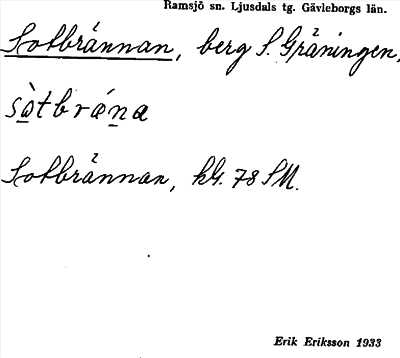 Ramsjö sn. Ljusdals tg. Gävleborgs län.
Sotbrännan, berg S. Gräningen,
sòtbrána
Sotbrännan, hG. 78 SM.
Erik Eriksson 1933